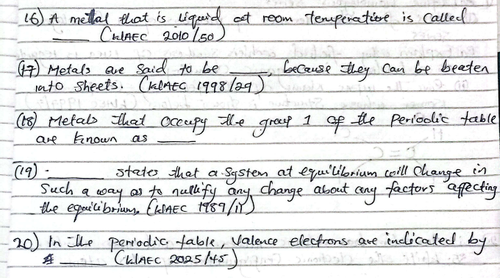 16) A metal that is liquid at room temperature is called
____ (WAEC 2010/50)
(17) Metals are said to be ____, because they can be beaten
into sheets. (WAEC 1998/29)
(18) Metals that occupy the group 1 of the periodic table
are known as ____
(19) ____ states that a system at equilibrium will change in
such a way as to nullify any change about any factors affecting
the equilibrium. (WAEC 1989/11)
20) In the periodic table, valence electrons are indicated by
____ (WAEC 2025/45)